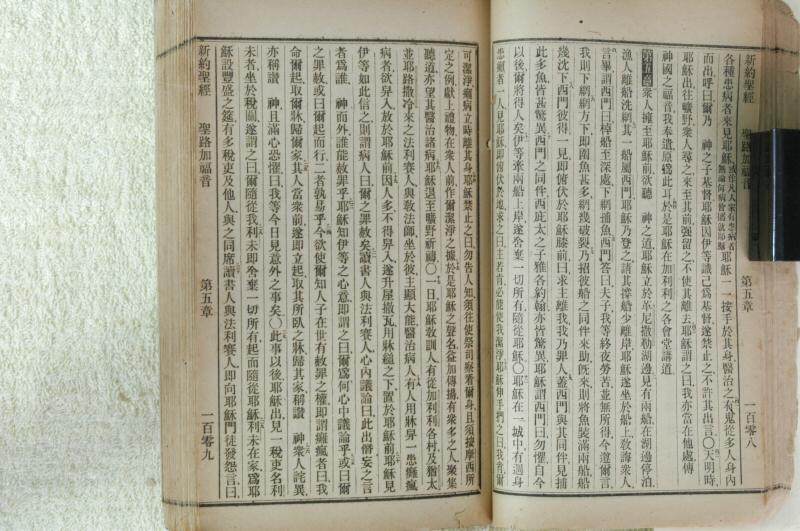 新約聖經 聖路加福音 第五章 一百零八
各種患病者來見耶穌、或作凡人家有患病者無論何病皆攜就耶穌耶穌一一按手於其身、醫治之、有鬼從多人身內
而出、呼曰、爾乃 神之子基督、耶穌因伊等識己爲基督、遂禁止之、不許其出言、〇天明時、
耶穌出往曠野、衆人尋之、來至其前、強留之、不使其離去、耶穌謂之曰、我亦當在他處傳
神國之福音、我奉遣原爲此耳、於是耶穌在加利利之各會堂講道、
第五章 衆人擁至耶穌前、欲聽 神之道、耶穌立於革尼撒勒湖邊、見有兩船在湖邊停泊、
漁人離船洗網、其一船屬西門、耶穌乃登之、請其撐船少離岸、耶穌遂坐於船上、教誨衆人、
言畢、謂西門曰、棹船至深處、下網捕魚、西門答曰、夫子、我等終夜勞苦、並無所得、今遵爾言、
我則下網、網方下、即圍魚甚多、網幾破裂、乃招彼船之同伴來助、旣來、則將魚裝滿兩船、船
幾沈下、西門彼得一見、即俯伏於耶穌膝前曰、求主離我、我乃罪人、蓋西門與其同伴、見捕
此多魚、皆甚驚異、西門之同伴西庇太之子雅各約翰、亦皆驚異、耶穌謂西門曰、勿懼、自今
以後、爾將得人矣、伊等牽兩船上岸、遂舍棄一切所有、隨從耶穌、〇耶穌在一城中、有遍身
患癩者一人、見耶穌、即面伏於地求之曰、主若肯、必能使我潔淨、耶穌伸手捫之曰、我肯、爾
可潔淨、癩病立時離其身、耶穌禁止之曰、勿告人知、須往使祭司察看爾身、且須按摩西所
定之例、獻上禮物、在衆人前作爾潔淨之據、於是耶穌之聲名益加傳揚、有衆多之人聚集
聽道、亦望其醫治諸病、耶穌退至曠野祈禱、〇一日、耶穌教訓人、有從加利利各村及猶太
並耶路撒冷來之法利賽人與教法師坐於彼、主顯大能醫治病人、有人用牀舁一患癱瘋
病者、欲舁入放於耶穌前、因人多不得舁入、遂升屋撤瓦、用牀縋之下、置於耶穌前、耶穌見
伊等如此信之、則謂病人曰、爾之罪赦矣、讀書人與法利賽人、心內議論曰、此出僭妄之言
者爲誰、 神而外、誰能赦罪乎、耶穌知伊等之心意、即謂之曰、爾爲何心中議論乎、或曰爾
之罪赦、或曰爾起而行、二者孰易乎、今欲使爾知人子在世有赦罪之權、即謂癱瘋者曰、我
命爾起、取爾牀歸爾家、其人當衆前、遂即立起、取其所臥之牀、歸其家、稱讚 神、衆人詫異、
亦稱讚 神、且滿心恐懼曰、我等今日見意外之事矣、〇此事以後、耶穌出、見一稅吏名利
未者、坐於稅關、遂謂之曰、爾隨從我、利未即舍棄一切所有、起而隨從耶穌、利未在家、爲耶
穌設豐盛之筵、有多稅吏及他人、與之同席、讀書人與法利賽人、即向耶穌門徒發怨言、曰、
新約聖經 聖路加福音 第五章 一百零九